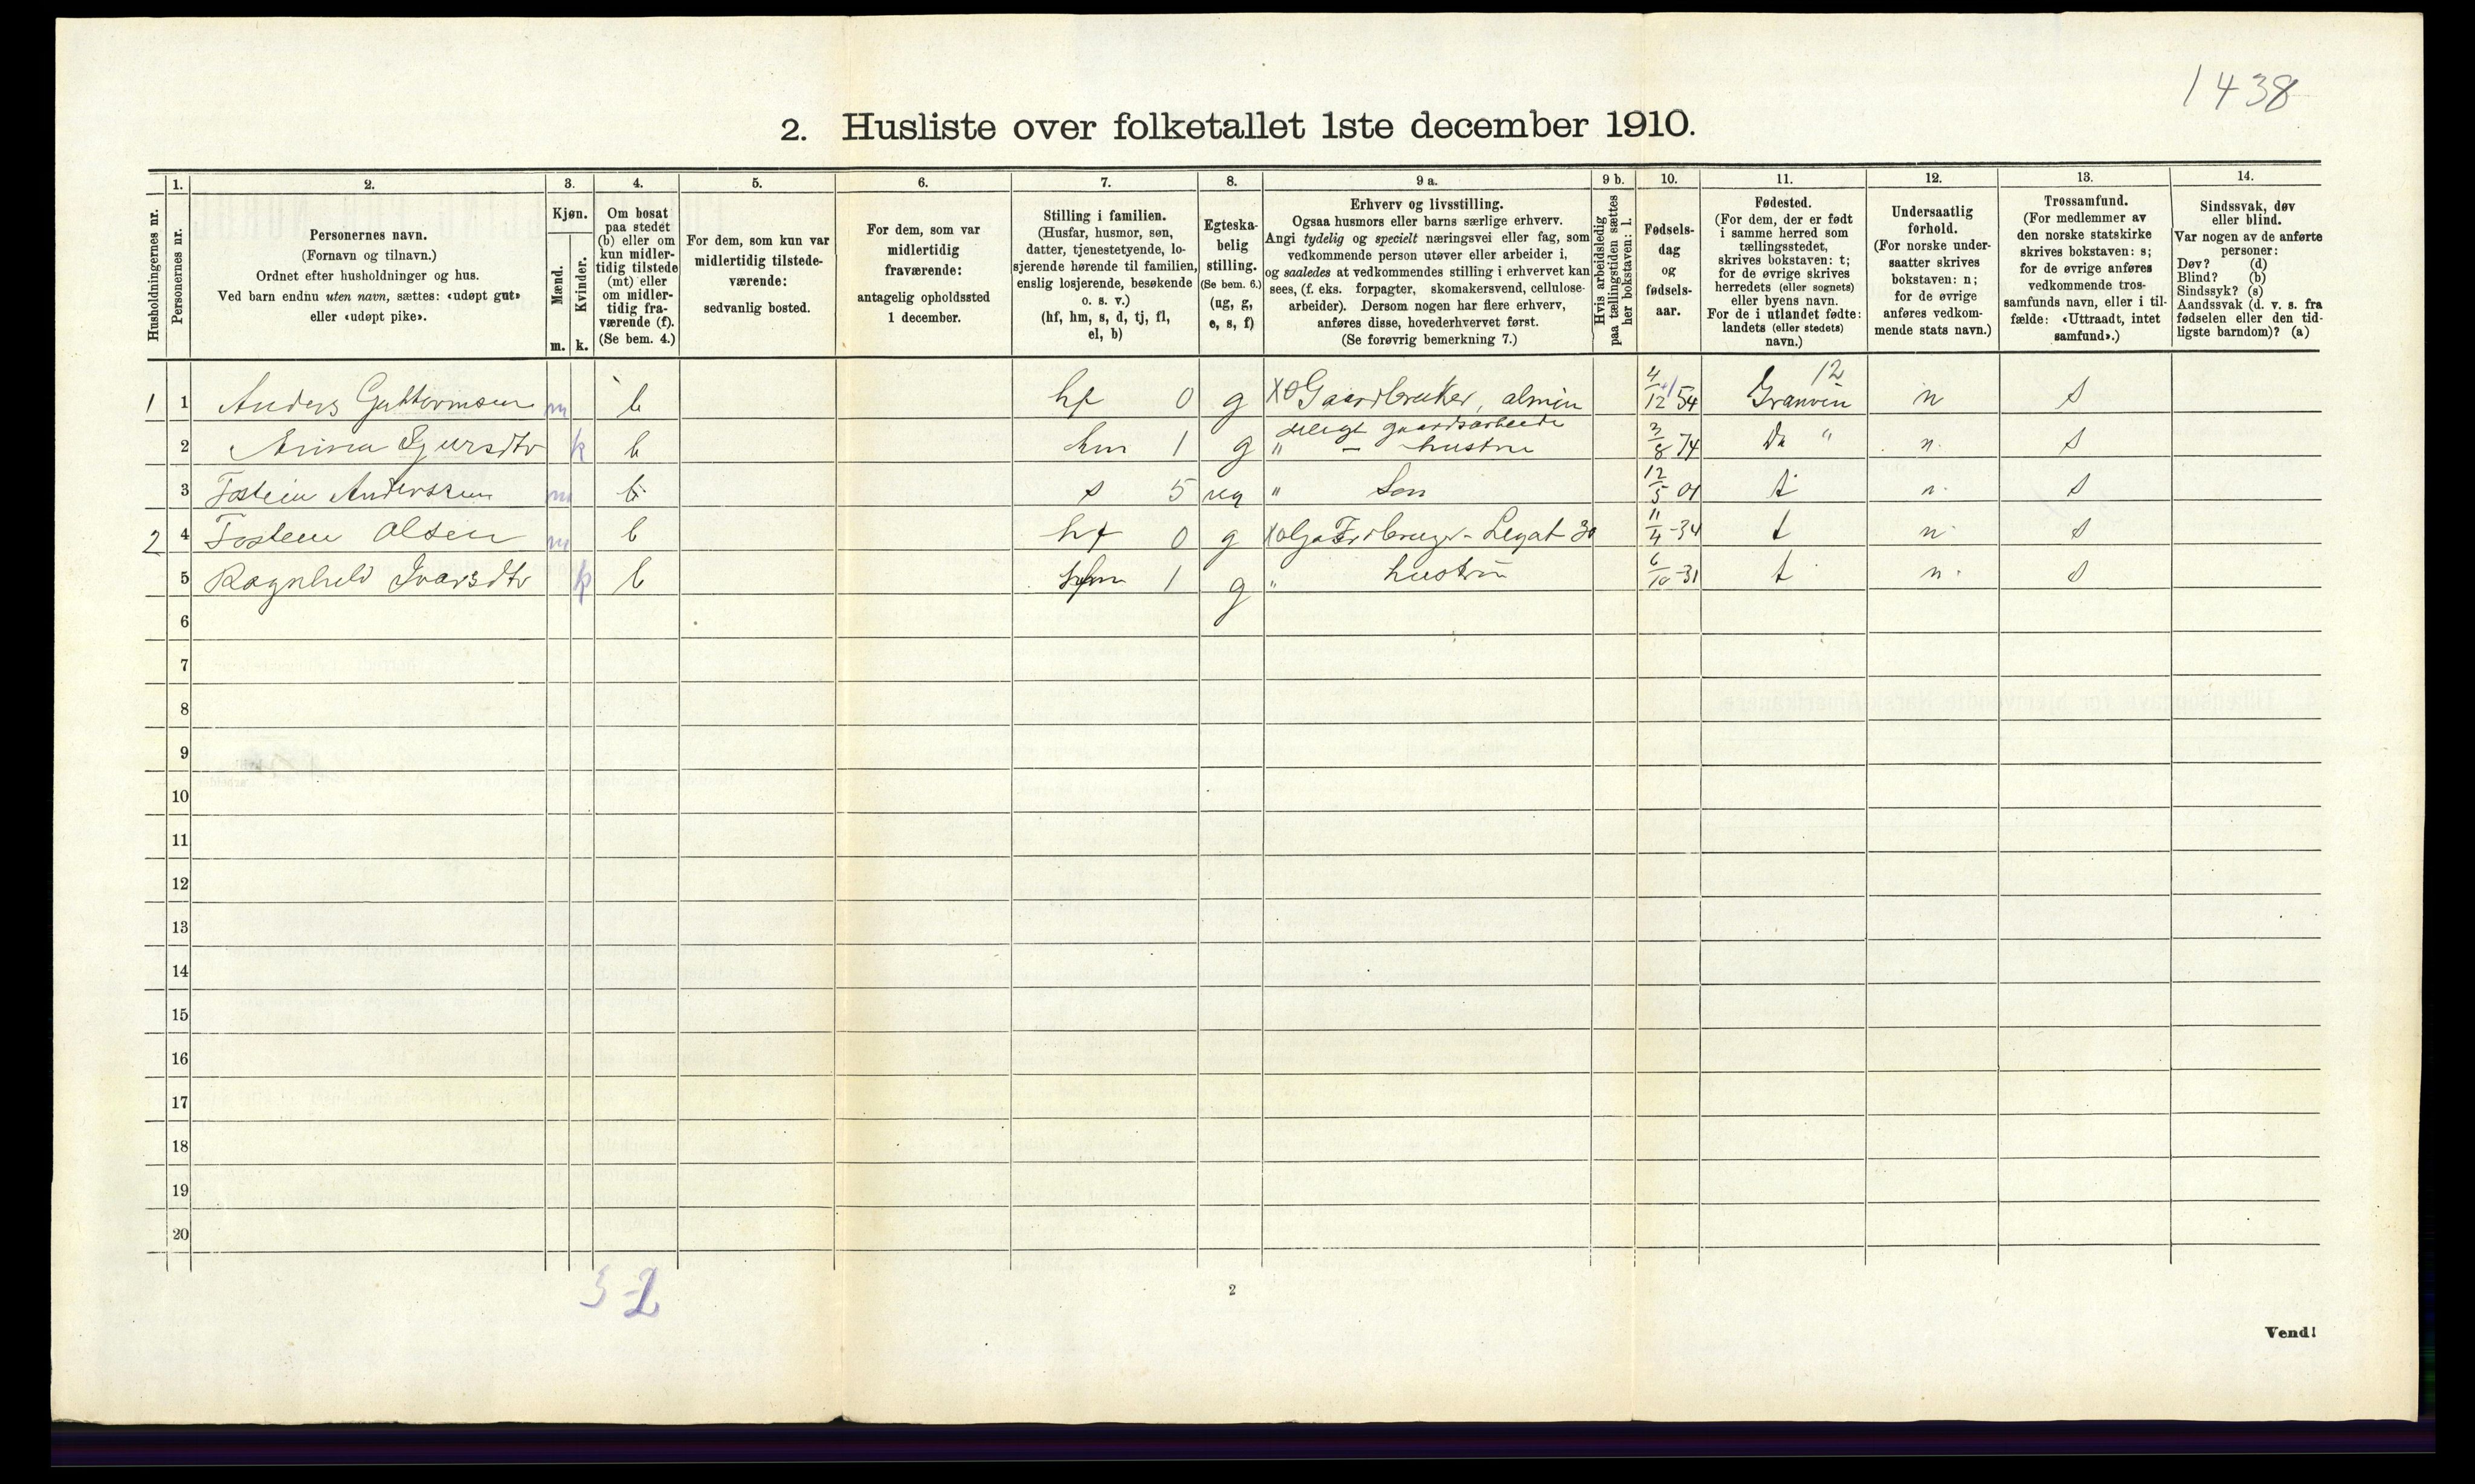 1438
2. Husliste over folketallet 1ste december 1910.
Husholdningernes nr.
1.
Personernes nr.
2.
Personernes navn.
(Fornavn og tilnavn.)
Ordnet efter husholdninger og hus.
Ved barn endnu uten navn, sættes: «udøpt gut»
eller «udøpt pike».
3.
Kjøn.
Mænd.
Kvinder.
m. k.
4.
Om bosat
paa stedet
(b) eller om
kun midler-
tidig tilstede
(mt) eller
om midler-
tidig fra-
værende (f).
(Se bem. 4.)
5.
For dem, som kun var
midlertidig tilstede-
værende:
sedvanlig bosted.
6.
For dem, som var
midlertidig
fraværende:
antagelig opholdssted
1 december.
7.
Stilling i familien.
(Husfar, husmor, søn,
datter, tjenestetyende, lo-
sjerende hørende til familien,
enslig losjerende, besøkende
o. s. v.)
(hf, hm, s, d, tj, fl,
el, b)
8.
Egteska-
belig
stilling.
(Se bem. 6.)
(ug, g,
e, s, f)
9 a.
Erhverv og livsstilling.
Ogsaa husmors eller barns særlige erhverv.
Angi tydelig og specielt næringsvei eller fag, som
vedkommende person utøver eller arbeider i,
og saaledes at vedkommendes stilling i erhvervet kan
sees, (f. eks. forpagter, skomakersvend, cellulose-
arbeider). Dersom nogen har flere erhverv,
anføres disse, hovederhvervet først.
(Se forøvrig bemerkning 7.)
9 b.
Hvis arbeidsledig
paa tællingstiden sættes
her bokstaven: l.
10.
Fødsels-
dag
og
fødsels-
aar.
11.
Fødested.
(For dem, der er født
i samme herred som
tællingsstedet,
skrives bokstaven: t;
for de øvrige skrives
herredets (eller sognets)
eller byens navn.
For de i utlandet fødte:
landets (eller stedets)
navn.)
12.
Undersaatlig
forhold.
(For norske under-
saatter skrives
bokstaven: n;
for de øvrige
anføres vedkom-
mende stats navn.)
13.
Trossamfund.
(For medlemmer av
den norske statskirke
skrives bokstaven: s;
for de øvrige anføres
vedkommende tros-
samfunds navn, eller i til-
fælde: «Uttraadt, intet
samfund».)
14.
Sindssvak, døv
eller blind.
Var nogen av de anførte
personer:
Døv? (d)
Blind? (b)
Sindssyk? (s)
Aandssvak (d. v. s. fra
fødselen eller den tid-
ligste barndom)? (a)
1 1 Anders Guttormsen m b hf 0 g XO Gaardbruker, almin 4/12 54 Granvin 12 n s
gaardsarbeide
2 Anna k b hm 1 g " — hustru 3/8 74 Do " n. s
3 Tostein Anderssen m b s 5 ug " Søn 12/5 01 t n. s
2 4 Tostein Olsen m b hf 0 g XO Legat 11/4 -34 t n. s
5 Ragnhild Ivarsdtr k b hm 1 g " hustru 6/10 -31 t n. s
6
7
8
9
10
11
12
13
14
15
16
17
18
19
20
3 2
2
Vend!